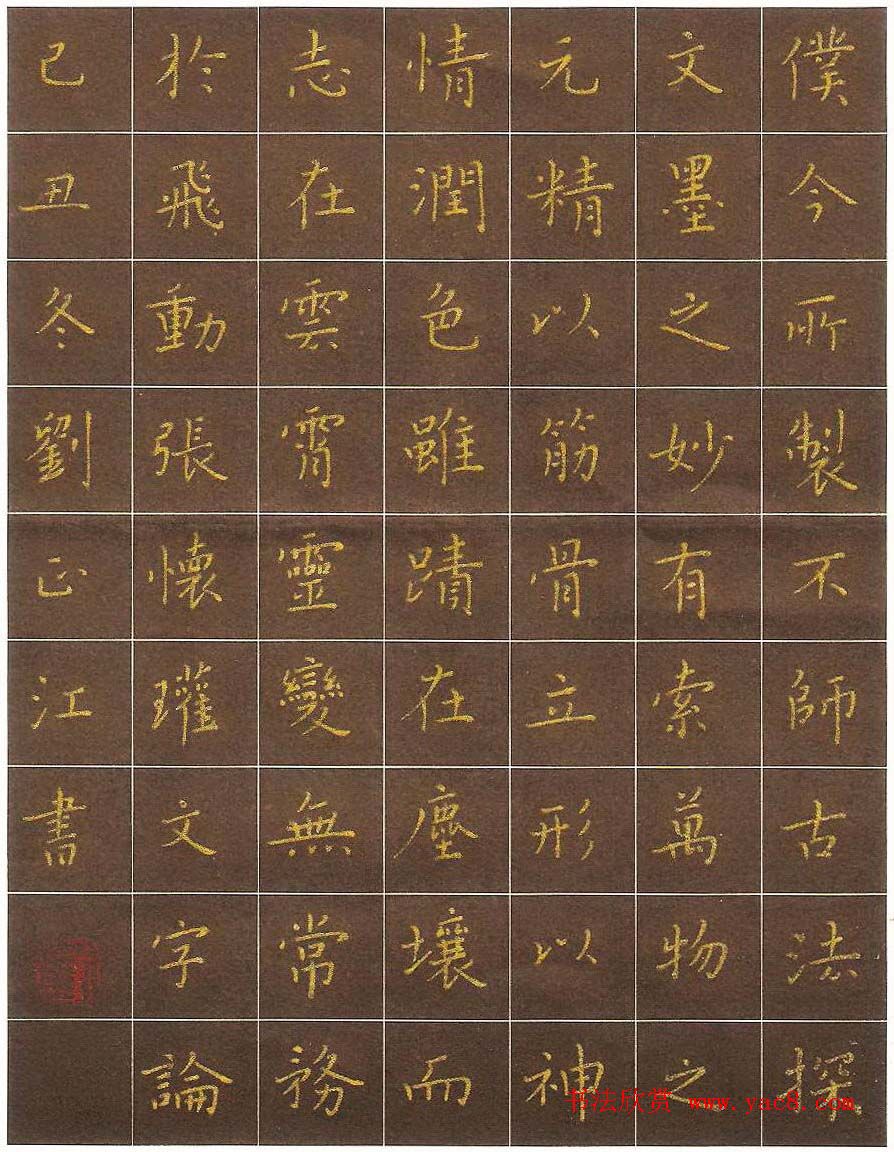 僕今所製不師古法探
文墨之妙有索萬物之
元精以筋骨立形以神
情潤色雖蹟在塵壤而
志在雲霄靈變無常務
於飛動張懷瓘文字論
己丑冬劉正江書
书法欣赏 www.yac8.com